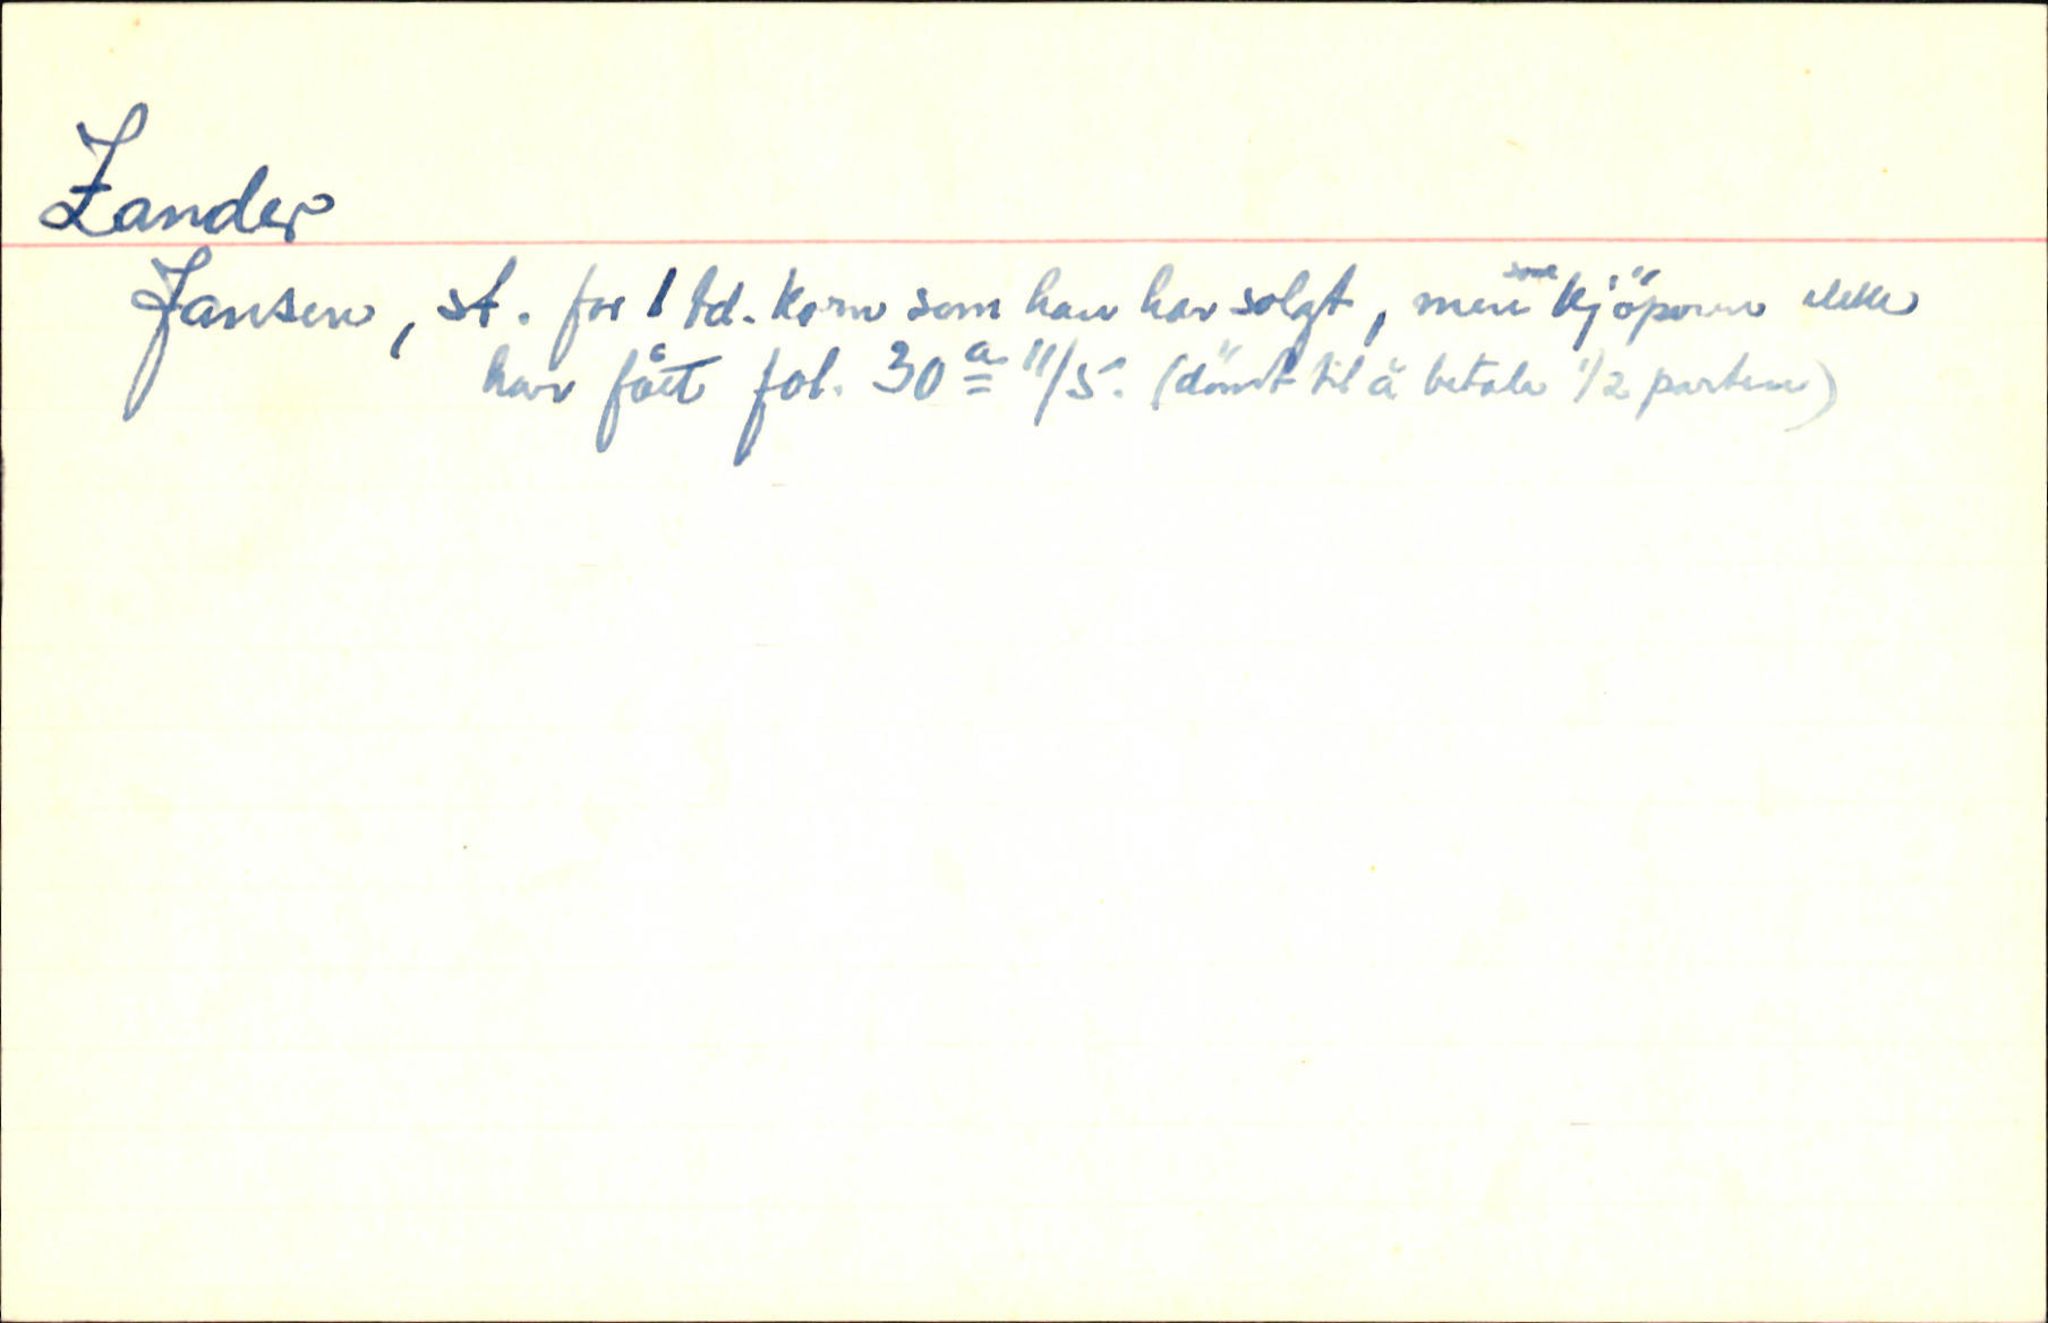 Zander
Jansen, st. for 1 td. korn som han har solgt, men som kjöperen ikke
har fått fol. 30 a 11/5. (dömt til å betale 1/2 parten)